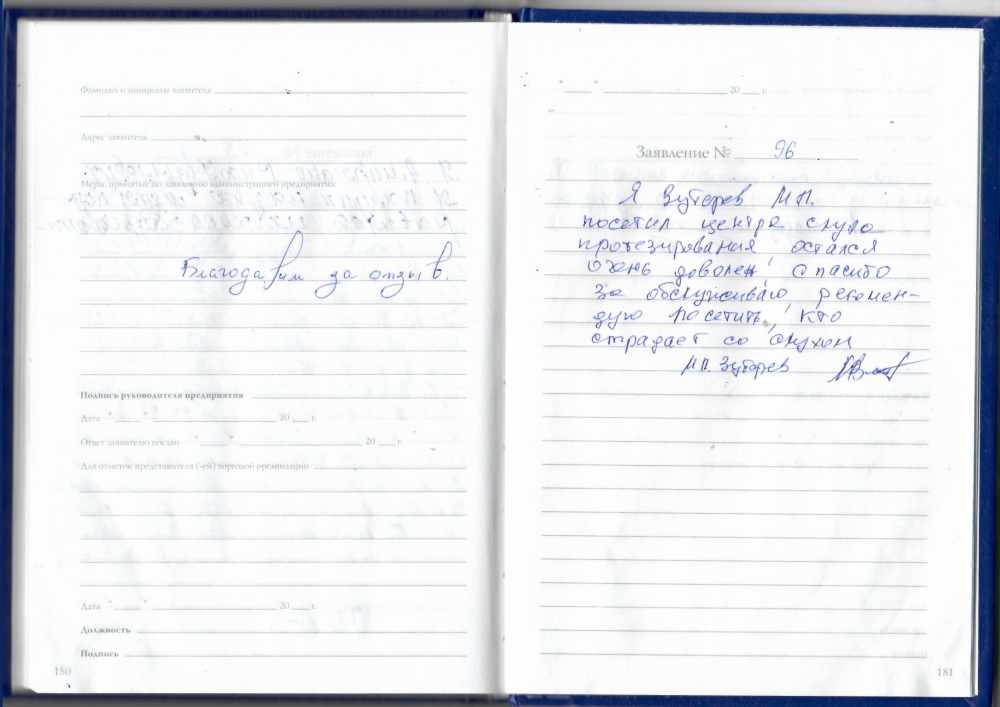 Фамилия и инициалы заявителя
Адрес заявителя
Меры, принятые по заявлению администрацией предприятия:
Благодарим за отзыв.
Подпись руководителя предприятия
Дата " " 20 г.
Ответ заявителю послан " " 20 г.
Для отметок представителя (-ей) торговой организации
Дата " " 20 г.
Должность
Подпись
180
" " 20 г.
Заявление № 96
Я Зутерев М.П.
посетил центра слухо
протезирования остался
очень доволен, спасибо
за обслуживаю, рекомен-
дую посетить, кто
страдает со слухом
М.П. Зутерев
181